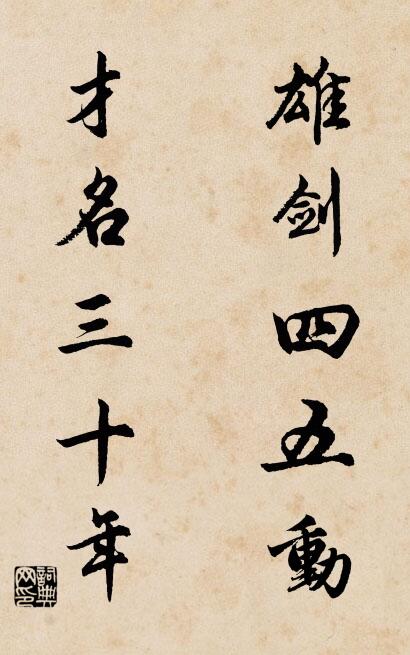 雄剑四五動
才名三十年
詞典網印